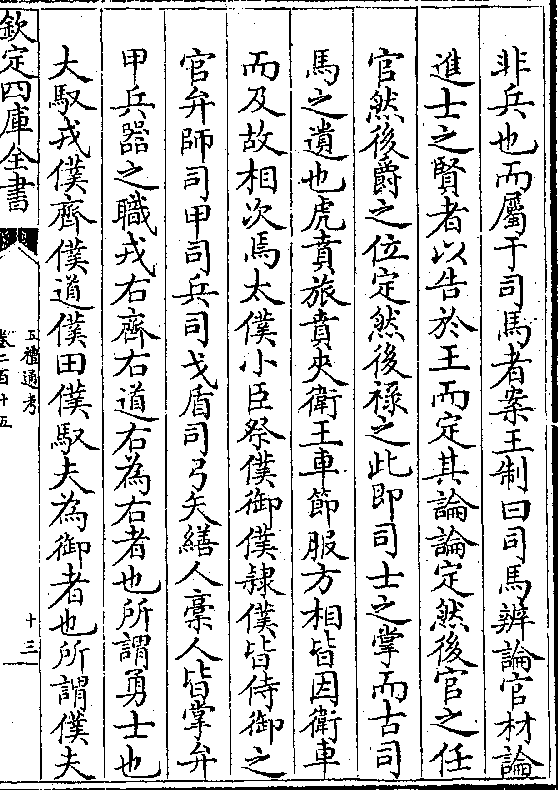 非兵也而屬于司馬者案王制曰司馬辨論官材論
進士之賢者以告於王而定其論論定然後官之任
官然後爵之位定然後祿之此即司士之掌而古司
馬之遺也虎賁旅賁夾衛王車節服方相皆因衛車
而及故相次焉太僕小臣祭僕御僕隸僕皆侍御之
官弁師司甲司兵司戈盾司弓矢繕人稾人皆掌弁
甲兵器之職戎右齊右道右為右者也所謂勇士也
大馭戎僕齊僕道僕田僕馭夫為御者也所謂僕夫
欽定四庫全書
五禮通考
卷二百十五
十三